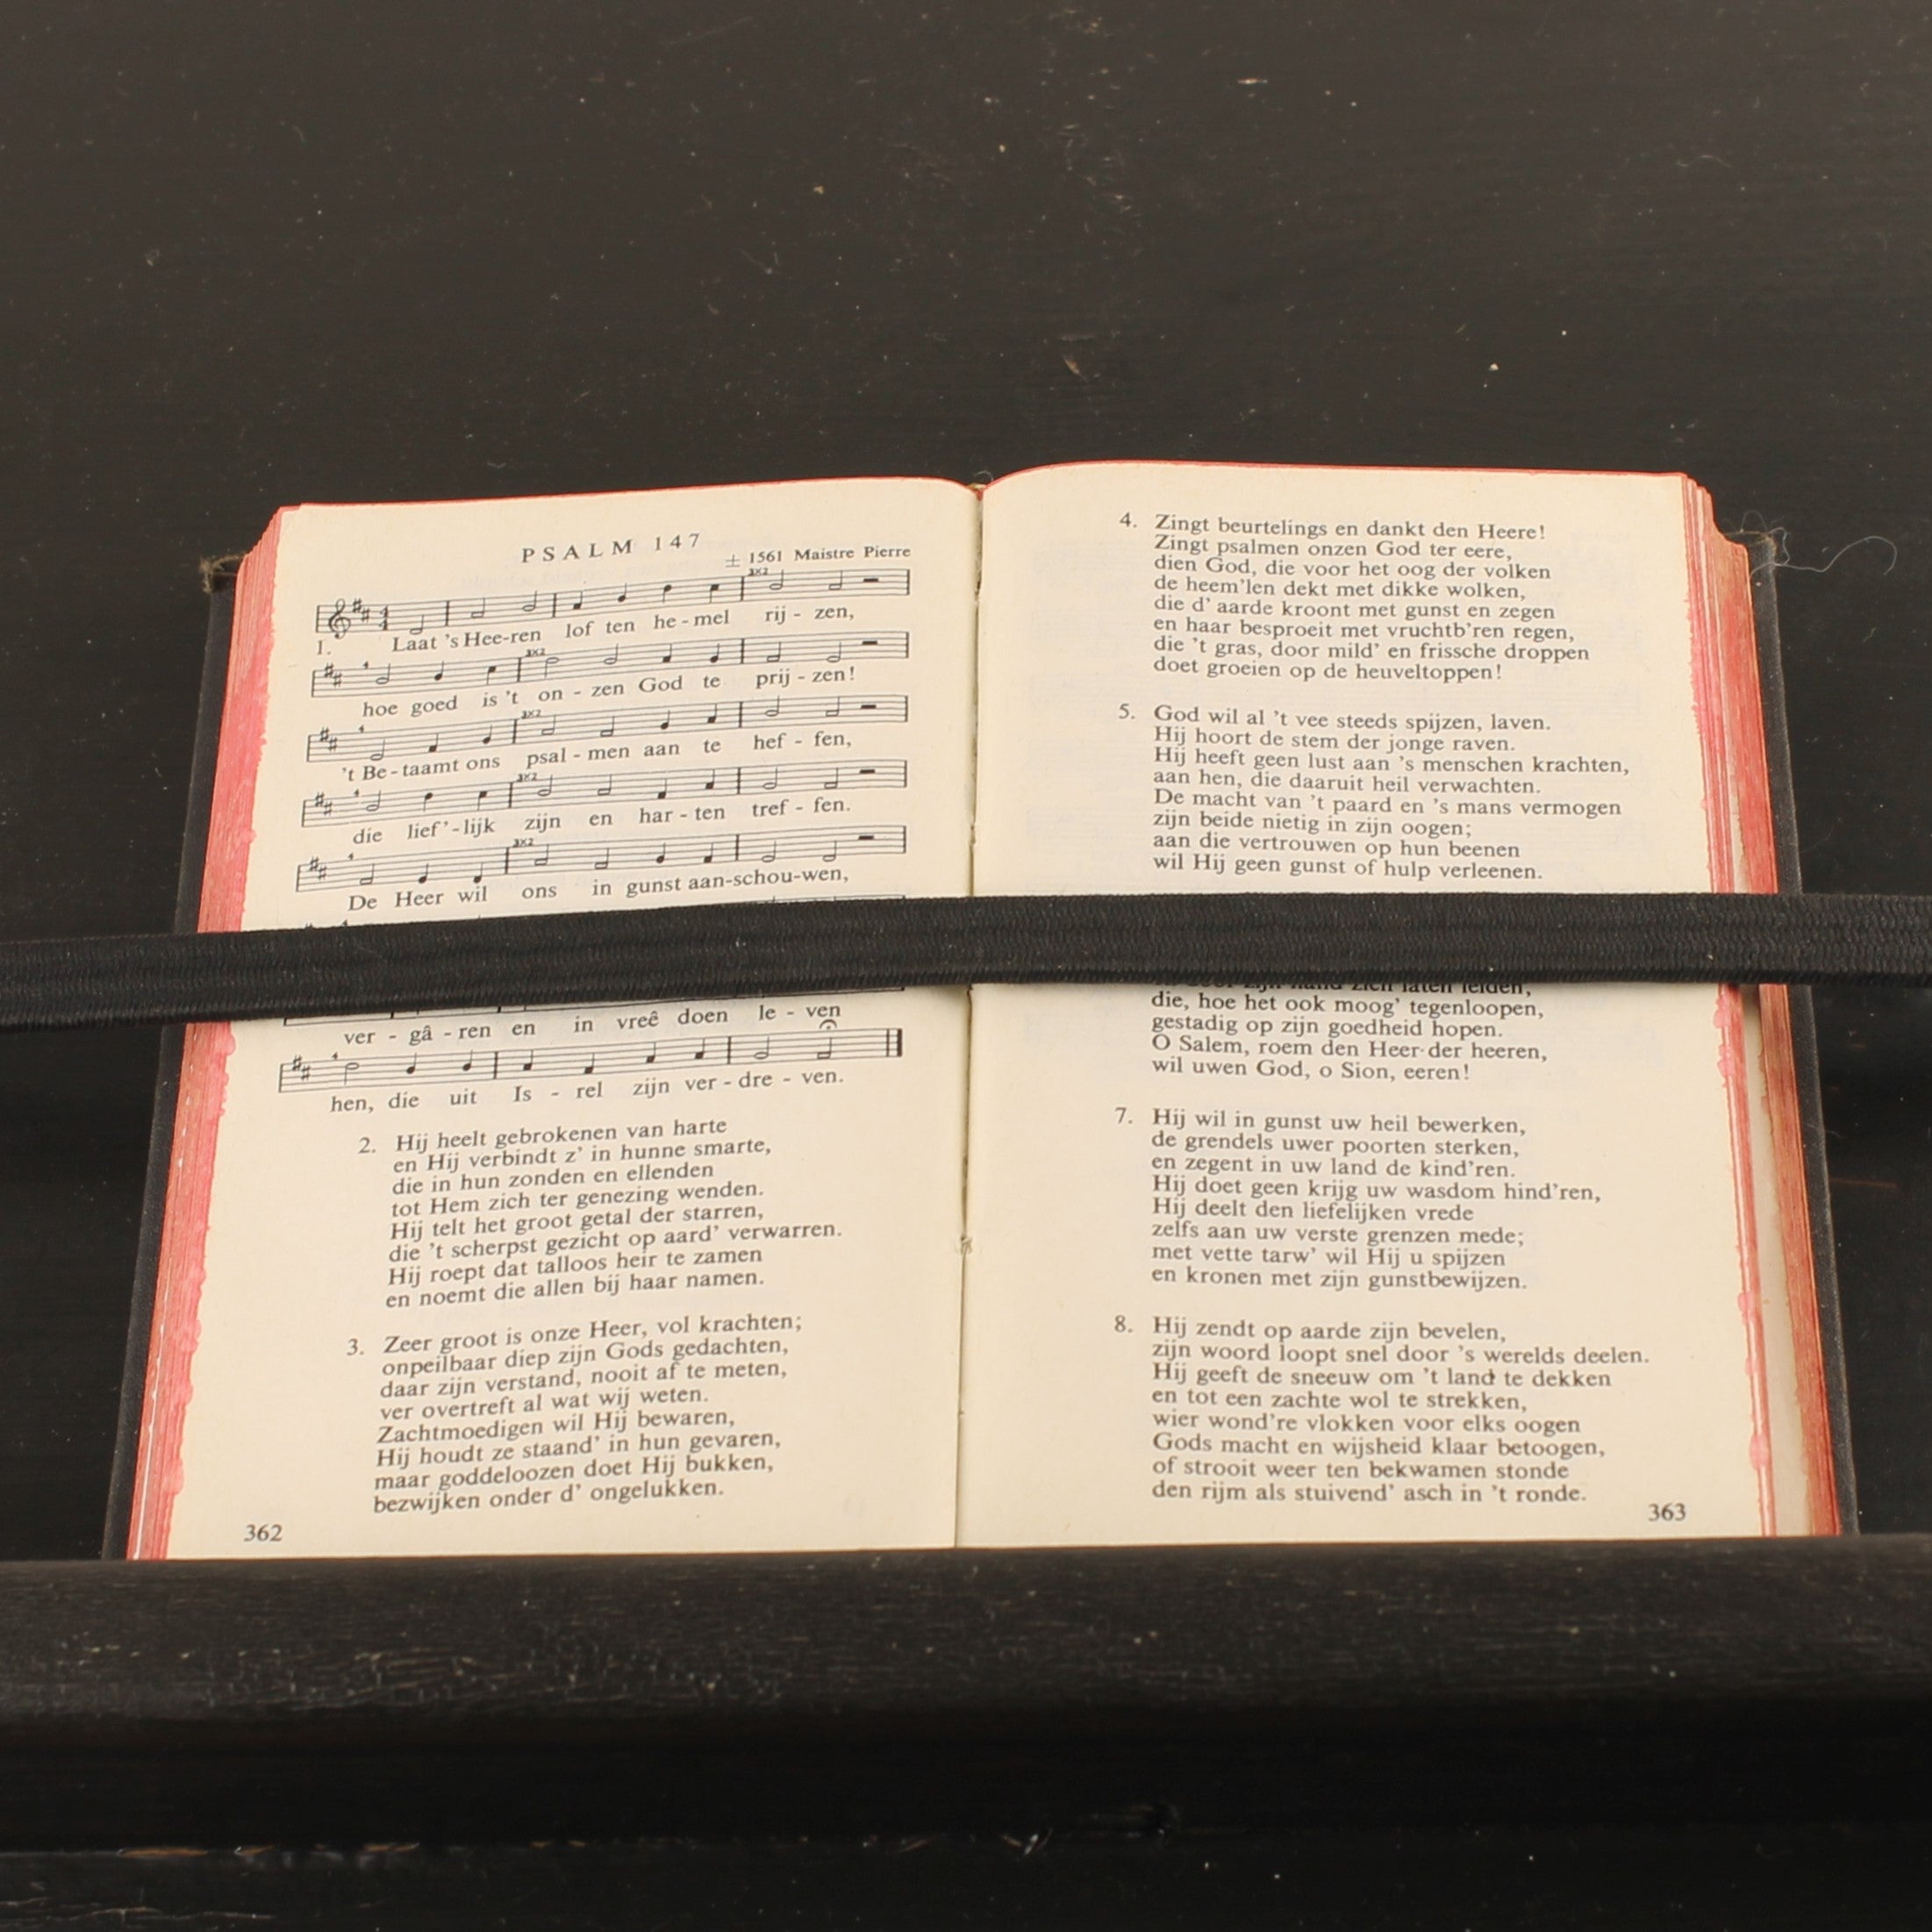 PSALM 147
± 1561 Maistre Pierre
1. Laat 's Hee-ren lof ten he-mel rij - zen,
hoe goed is 't on - zen God te prij - zen!
't Be-taamt ons psal - men aan te hef - fen,
die lief'-lijk zijn en har - ten tref - fen.
De Heer wil ons in gunst aan-schou-wen,
ver - gâ - ren en in vreê doen le - ven
hen, die uit Is - rel zijn ver - dre - ven.
2. Hij heelt gebrokenen van harte
en Hij verbindt z' in hunne smarte,
die in hun zonden en ellenden
tot Hem zich ter genezing wenden.
Hij telt het groot getal der starren,
die 't scherpst gezicht op aard' verwarren.
Hij roept dat talloos heir te zamen
en noemt die allen bij haar namen.
3. Zeer groot is onze Heer, vol krachten;
onpeilbaar diep zijn Gods gedachten,
daar zijn verstand, nooit af te meten,
ver overtreft al wat wij weten.
Zachtmoedigen wil Hij bewaren,
Hij houdt ze staand' in hun gevaren,
maar goddeloozen doet Hij bukken,
bezwijken onder d' ongelukken.
362
4. Zingt beurtelings en dankt den Heere!
Zingt psalmen onzen God ter eere,
dien God, die voor het oog der volken
de heem'len dekt met dikke wolken,
die d' aarde kroont met gunst en zegen
en haar besproeit met vruchtb'ren regen,
die 't gras, door mild' en frissche droppen
doet groeien op de heuveltoppen!
5. God wil al 't vee steeds spijzen, laven.
Hij hoort de stem der jonge raven.
Hij heeft geen lust aan 's menschen krachten,
aan hen, die daaruit heil verwachten.
De macht van 't paard en 's mans vermogen
zijn beide nietig in zijn oogen;
aan die vertrouwen op hun beenen
wil Hij geen gunst of hulp verleenen.
zijn hand zich laten leiden,
die, hoe het ook moog' tegenloopen,
gestadig op zijn goedheid hopen.
O Salem, roem den Heer der heeren,
wil uwen God, o Sion, eeren!
7. Hij wil in gunst uw heil bewerken,
de grendels uwer poorten sterken,
en zegent in uw land de kind'ren.
Hij doet geen krijg uw wasdom hind'ren,
Hij deelt den liefelijken vrede
zelfs aan uw verste grenzen mede;
met vette tarw' wil Hij u spijzen
en kronen met zijn gunstbewijzen.
8. Hij zendt op aarde zijn bevelen,
zijn woord loopt snel door 's werelds deelen.
Hij geeft de sneeuw om 't land te dekken
en tot een zachte wol te strekken,
wier wond're vlokken voor elks oogen
Gods macht en wijsheid klaar betoogen,
of strooit weer ten bekwamen stonde
den rijm als stuivend' asch in 't ronde.
363